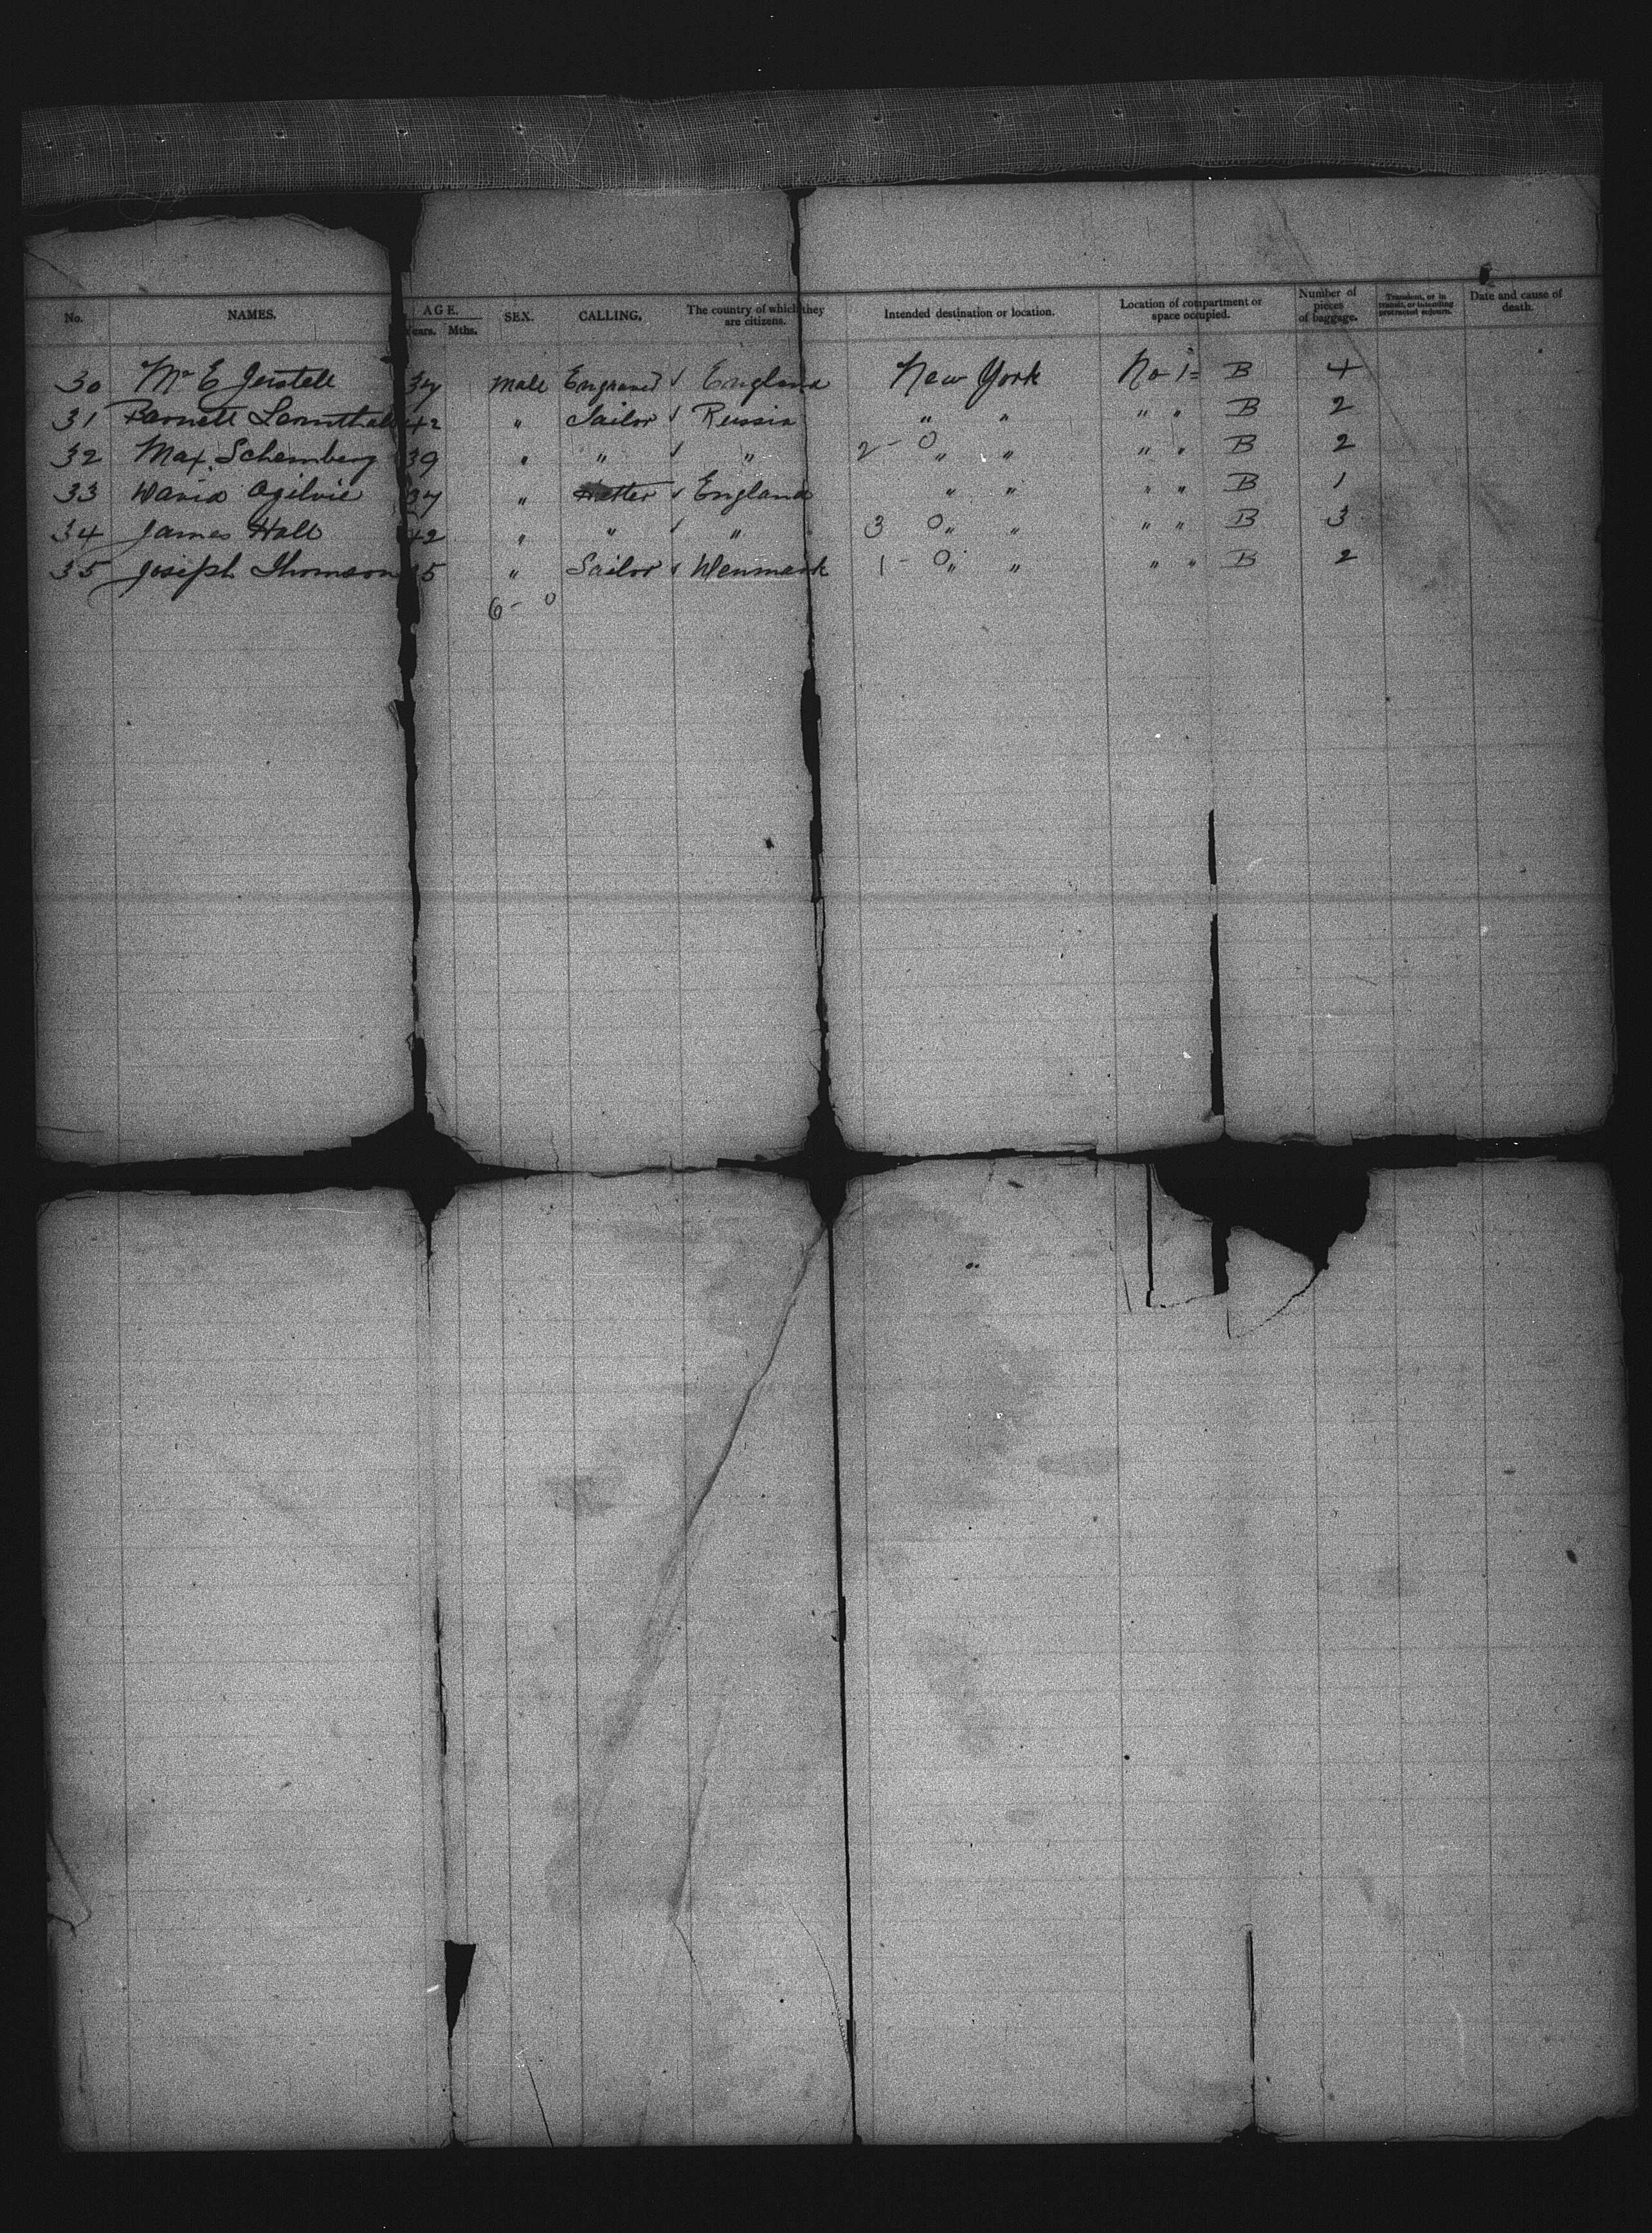 No. NAMES. AGE. Years. Mths. SEX. CALLING. The country of which they are citizens. Intended destination or location. Location of compartment or space occupied. Number of pieces of baggage. Transient, or in transit, or intending protracted sojourn. Date and cause of death.
30 Mr E Jerstell 34 Male Engraver ✓ England New York No 1 = B 4
31 Barnett 42 " Tailor ✓ Russia " " " " B 2
32 Max Schemberg 39 " " ✓ " 2 - 0 " " " " B 2
33 David Ogilvie 34 " Hatter ✓ England " " " " B 1
34 James Hall 42 " " ✓ " 3 0 " " " " B 3
35 Joseph Thomson 5 " Sailor ✓ Denmark 1 - 0 " " " " B 2
6 - 0